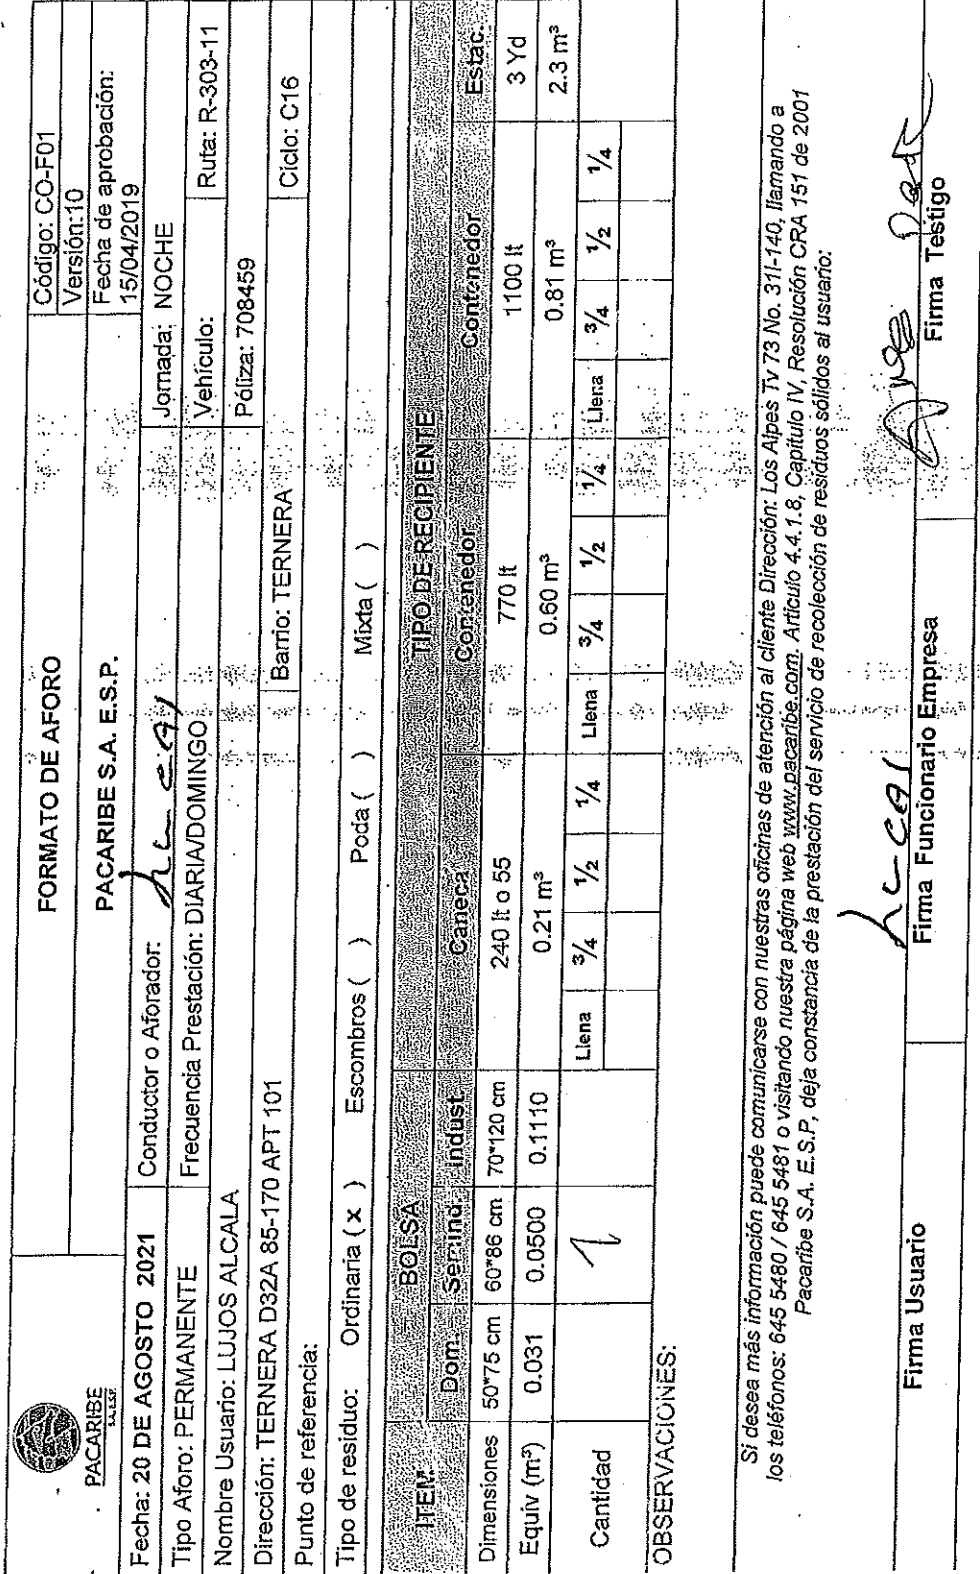 PACARIBE
S.A. E.S.P.
FORMATO DE AFORO
PACARIBE S.A. E.S.P.
Código: CO-F01
Versión:10
Fecha de aprobación:
15/04/2019
Fecha: 20 DE AGOSTO 2021 Conductor o Aforador: Jornada: NOCHE
Tipo Aforo: PERMANENTE Frecuencia Prestación: DIARIA/DOMINGO Vehículo: Ruta: R-303-11
Nombre Usuario: LUJOS ALCALA Póliza: 708459
Dirección: TERNERA D32A 85-170 APT 101 Barrio: TERNERA Ciclo: C16
Punto de referencia:
Tipo de residuo: Ordinaria ( x ) Escombros ( ) Poda ( ) Mixta ( )
ITEM. BOLSA TIPO DE RECIPIENTE
Dom. Semiind. Indust. Caneca Contenedor Contenedor Estac.
Dimensiones 50*75 cm 60*86 cm 70*120 cm 240 lt o 55 770 lt 1100 lt 3 Yd
Equiv (m³) 0.031 0.0500 0.1110 0.21 m³ 0.60 m³ 0.81 m³ 2.3 m³
Cantidad 1 Llena 3/4 1/2 1/4 Llena 3/4 1/2 1/4 Llena 3/4 1/2 1/4
OBSERVACIONES:
Si desea más información puede comunicarse con nuestras oficinas de atención al cliente Dirección: Los Alpes Tv 73 No. 31I-140, llamando a
los teléfonos: 645 5480 / 645 5481 o visitando nuestra página web www.pacaribe.com. Artículo 4.4.1.8, Capítulo IV, Resolución CRA 151 de 2001
Pacaribe S.A. E.S.P, deja constancia de la prestación del servicio de recolección de residuos sólidos al usuario:
Firma Usuario Firma Funcionario Empresa Firma Testigo